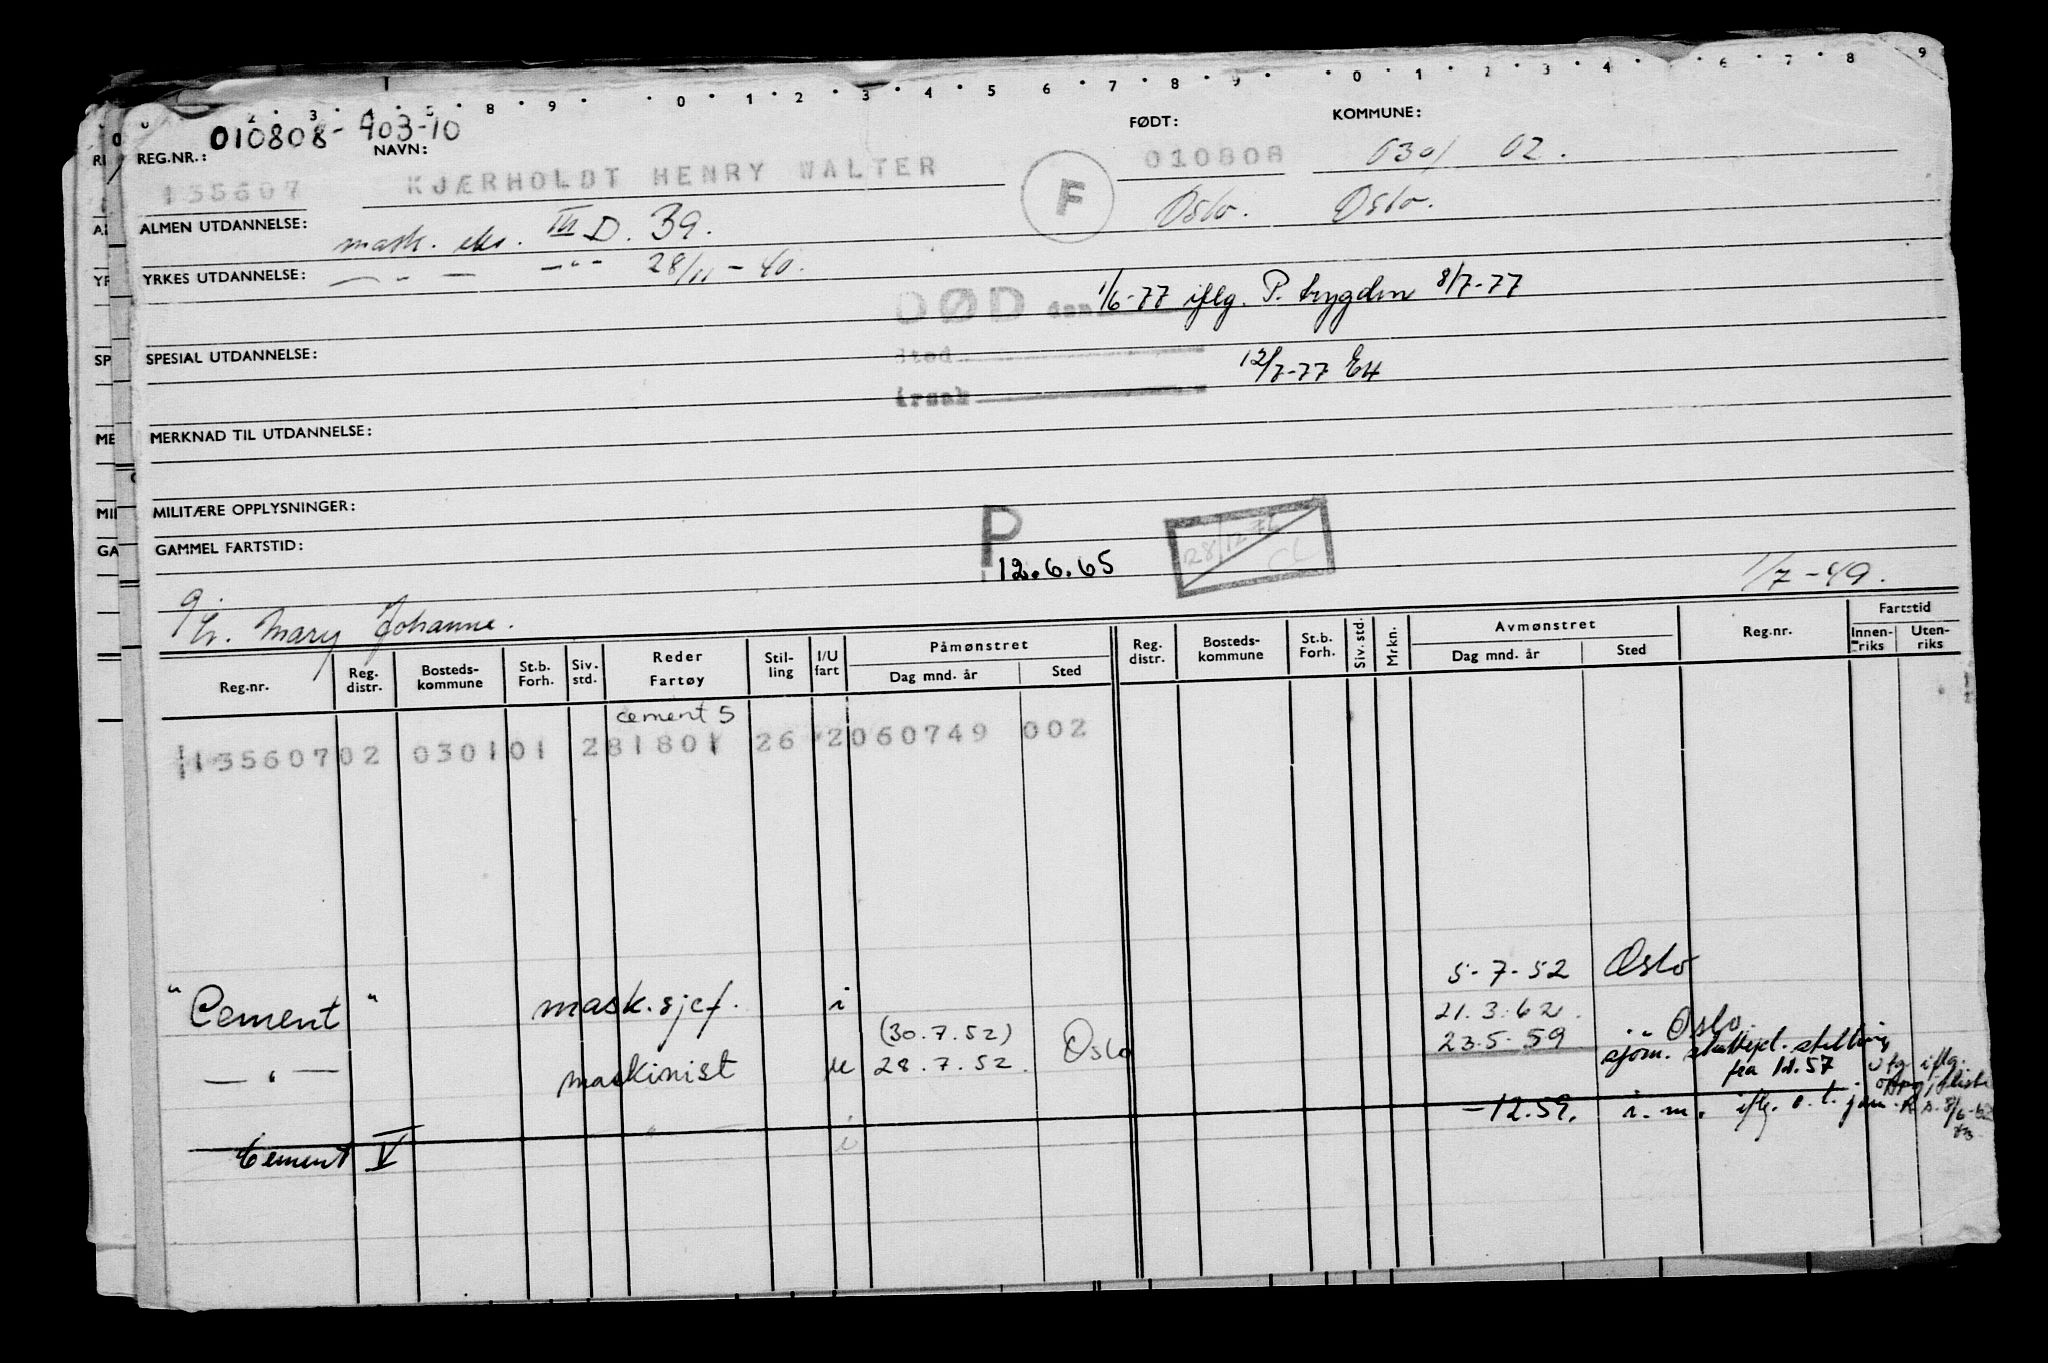 0 1 2 3 4 5 6 7 8 9 0 1 2 3 4 6 7 8 9
REG.NR.: 010808-403-10 NAVN: FØDT: KOMMUNE:
135607 KJÆRHOLDT HENRY WALTER F 010808 0301 02.
ALMEN UTDANNELSE: mask. eks. III D. 39. Oslo. Oslo.
YRKES UTDANNELSE: — " — — " — 28/11-40.
DØD den 1/6-77 iflg. P. trygden 8/7-77
SPESIAL UTDANNELSE: Sted
12/7-77 EH
årsak
MERKNAD TIL UTDANNELSE:
MILITÆRE OPPLYSNINGER:
GAMMEL FARTSTID: P 12.6.65 28/12 76 CL
1/7-49.
g. Mary Johanne.
Reg.nr. Reg. distr. Bosteds-kommune St.b. Forh. Siv. std. Reder Fartøy Stil-ling I/U fart Påmønstret Dag mnd. år Sted Reg. distr. Bosteds-kommune St.b. Forh. Siv. std. Mrkn. Avmønstret Dag mnd. år Sted Reg.nr. Fartstid Innen-riks Uten-riks
cement 5
13560702 030101 281801 26 2060749 002
5-7-52 Oslo
"Cement" mask.sjef. i 21.3.62. Oslo
(30.7.52)
— " — maskinist u 28.7.52. Oslo 23.5.59 sjøm. stilling
fra 1.1.57
Cement V — " — i -12.59. i. m. iflg. o.l.